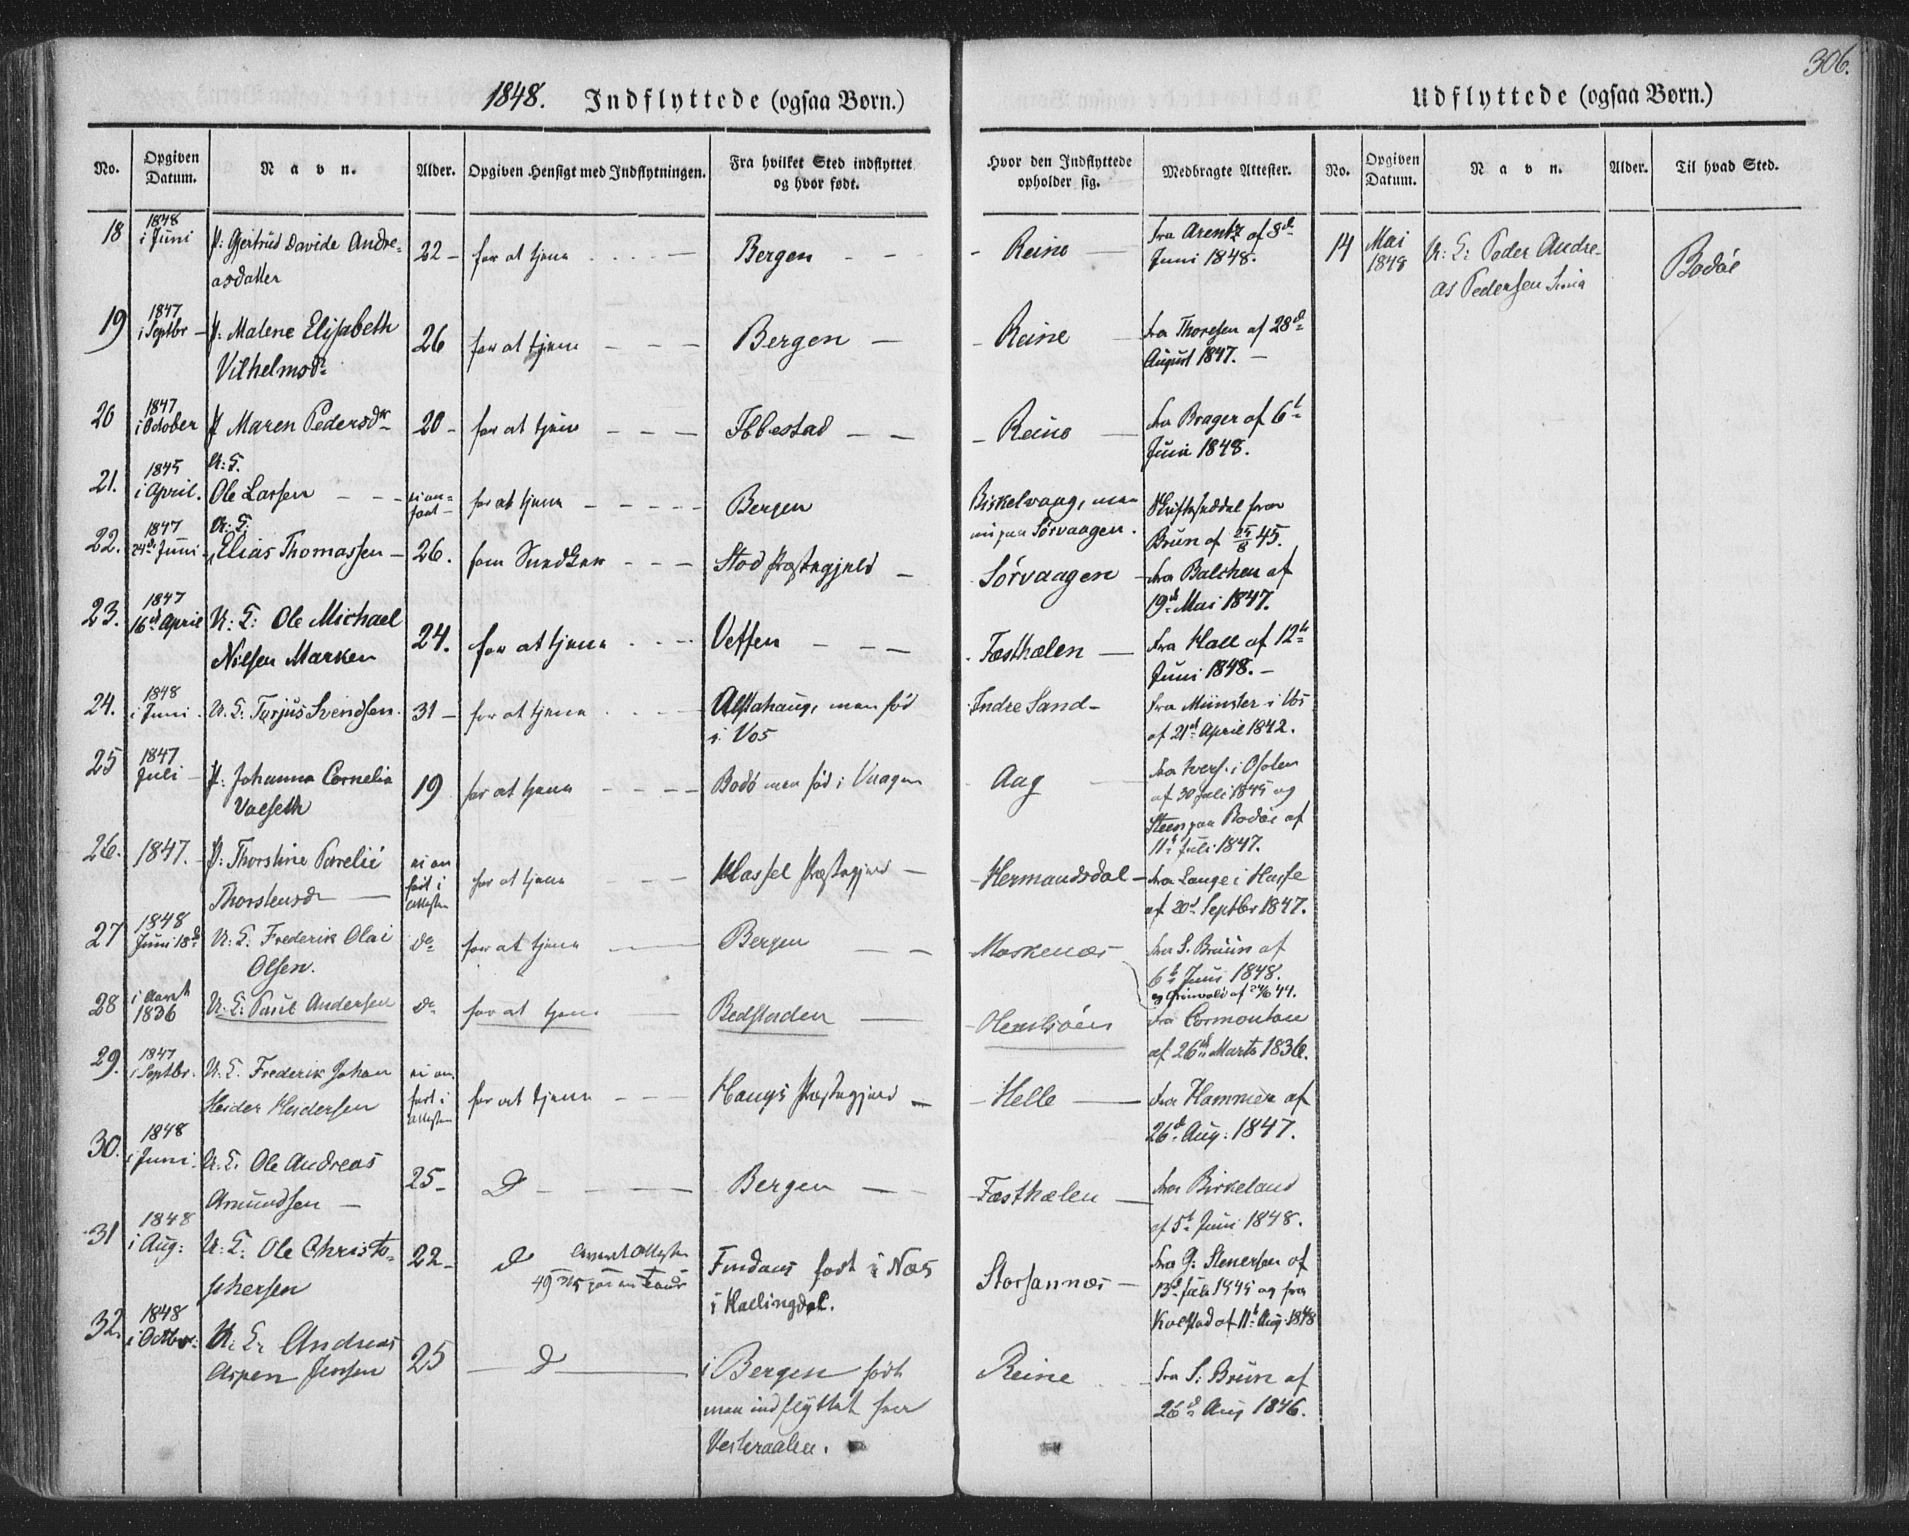 306.
1848. Indflyttede (ogsaa Børn.)
Udflyttede (ogsaa Børn.)
No. Opgiven Datum. Navn. Alder. Opgiven Hensigt med Indflytningen. Fra hvilket Sted indflyttet og hvor født. Hvor den Indflyttede opholder sig. Medbragte Attester. No. Opgiven Datum. Navn. Alder. Til hvad Sted.
18 1848 i Juni P: Gjertrud Davide Andre-
asdatter 22 - for at tjene Bergen - Reine Fra Arentz af 8d
Juni 1848.
14 Mai 1848 U: K: Peder Andre-
as Pedersen Bodøe
19 1847 i Septbr P: Malene Elisabeth
Vilhelmsd: 26 for at tjene Bergen - Reine fra Thoresen af 28d
August 1847.
20 1847 i October P Maren Pedersdr 20 - for at tjene Ibbestad - Reine fra Brager af 6t
Juni 1848.
21. 1845 i April. U: K:
Ole Larsen for at tjene Bergen Birkelvaag, men
nu paa Sørvaagen.
Brun af 25/8 45.
22. 1847 24d Juni U: K:
Elias Thomassen 26. som Snedker Stod Præstegjeld Sørvaagen fra Balchen af
19d Mai 1847.
23. 1847 16d April U: K: Ole Michael
Nilsen Marken 24. for at tjene Vefsen Fæsthælen Fra Hall af 12t
Juni 1848.
24. 1848 i Juni U: K: Torjus Svendsen 31 - for at tjene Alstahaug, men fød
i Vos Indre Sand - Fra Münster i Vos
af 21d April 1842.
25 1847 Juli P. Johanna Cornelia
Valseth 19 for at tjene Bodø men fød i Vaagen Aag
af 30 Juli 1845 og
Steen paa Bodøe af
11t Juli 1847.
26. 1847. P: Thorstine Parelie
Thorstensd ei an
ført i
Attesten for at tjene Hassel Præstegjeld Hermandsdal fra Lange i Hassel
af 20d Septbr 1847.
27 1848 Juni 18d U: K: Frederik Olai
Olsen. do for at tjene Bergen Moskenæs fra S. Bruun af
6t Juni 1848.
28 i Aaret 1836 U. K: Paul Andersen do for at tjene Bedstaden fra Cormontan
af 26d Marts 1836.
29. 1847 i Septbr. U. K. Frederik Johan
Heider Hendersen ei an
ført i
Attesten for at tjene Haugs Præstegjeld - Helle fra Hammer af
26d Aug: 1847.
30. 1848 i Juni U. K. Ole Andreas
Amundsen 25 - D Bergen - Fæsthælen fra Birkeland
af 5t Juni 1848.
31 1848 i Aug: U. K. Ole Christo-
phersen 22 - D født i Næs
i Hallingdal. Storsannæs Fra G. Stenersen af
13d Juli 1845 og fra
Kolstad af 11t Aug. 1848
32. 1848 i Octbr: U. K. Andreas
Aspen Jensen 25 D i Bergen født
men indflyttet fra
Vesteraalen. Reine Fra S: Brun af
26d Aug 1846.